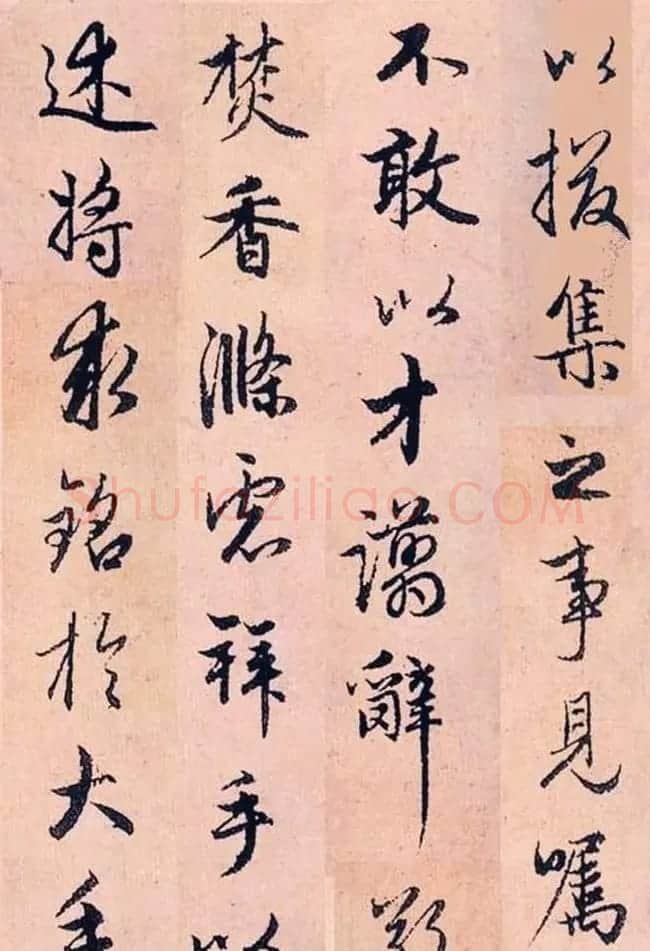 以掇集之事見囑
不敢以才譾辭
焚香滌慮拜手以
述將求銘於大手
Shufaziliao.COM